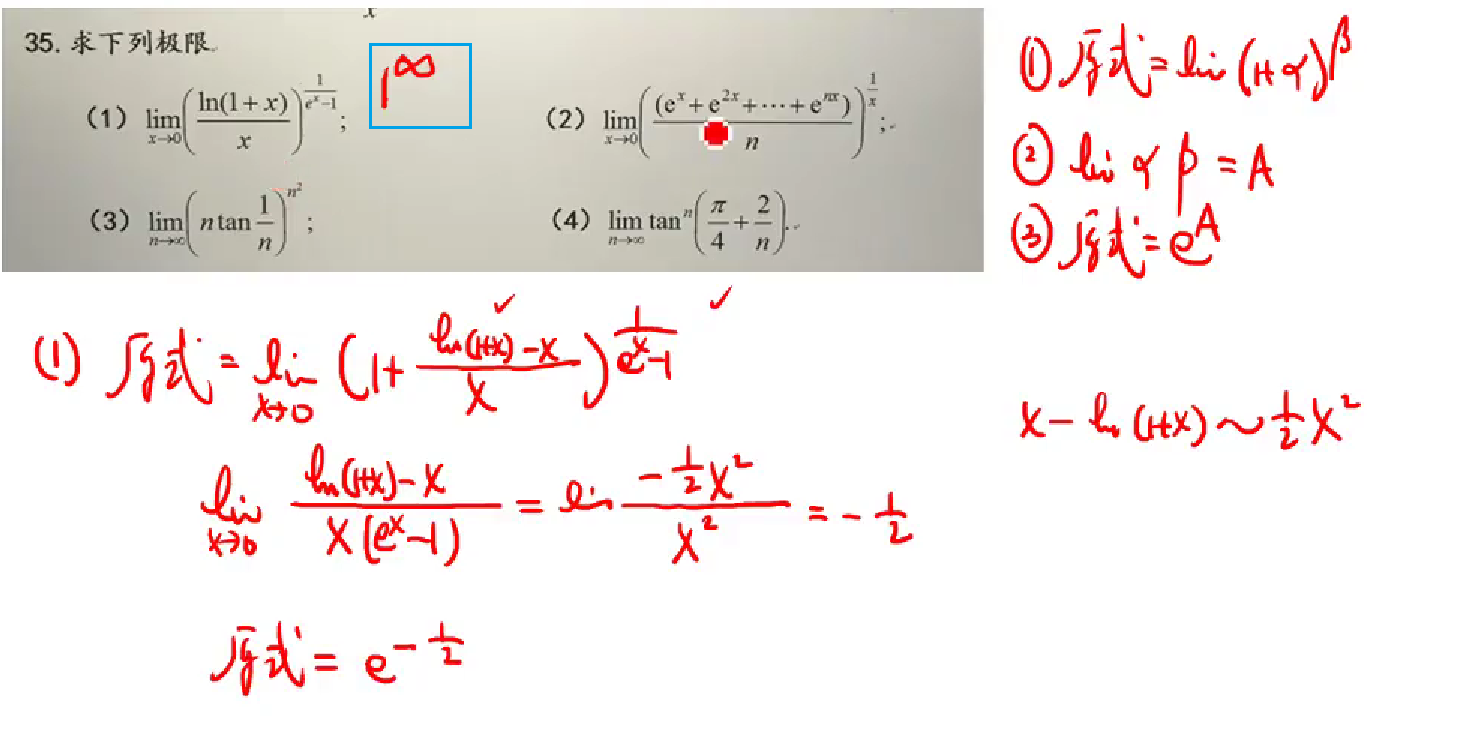 x
35. 求下列极限.
(1) lim_{x→0} (ln(1+x)/x)^{1/(e^x-1)}; 1^∞ (2) lim_{x→0} ((e^x+e^{2x}+⋯+e^{nx})/n)^{1/x};
(3) lim_{n→∞} (n tan 1/n)^{n^2}; (4) lim_{n→∞} tan^n(π/4+2/n).
① 原式=lim (1+α)^β
② lim α β = A
③ 原式=e^A
(1) 原式=lim_{x→0} (1+ (ln(1+x)-x)/x)^{1/(e^x-1)}
x-ln(1+x)~1/2 x^2
lim_{x→0} (ln(1+x)-x)/(x(e^x-1)) = lim (-1/2 x^2)/x^2 = -1/2
原式= e^{-1/2}